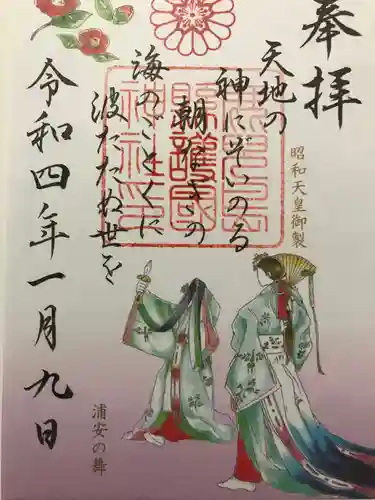 奉拝
天地の
神にぞいのる
朝なぎの
海のごとくに
波たたぬ世を
昭和天皇御製
令和四年一月九日
浦安の舞